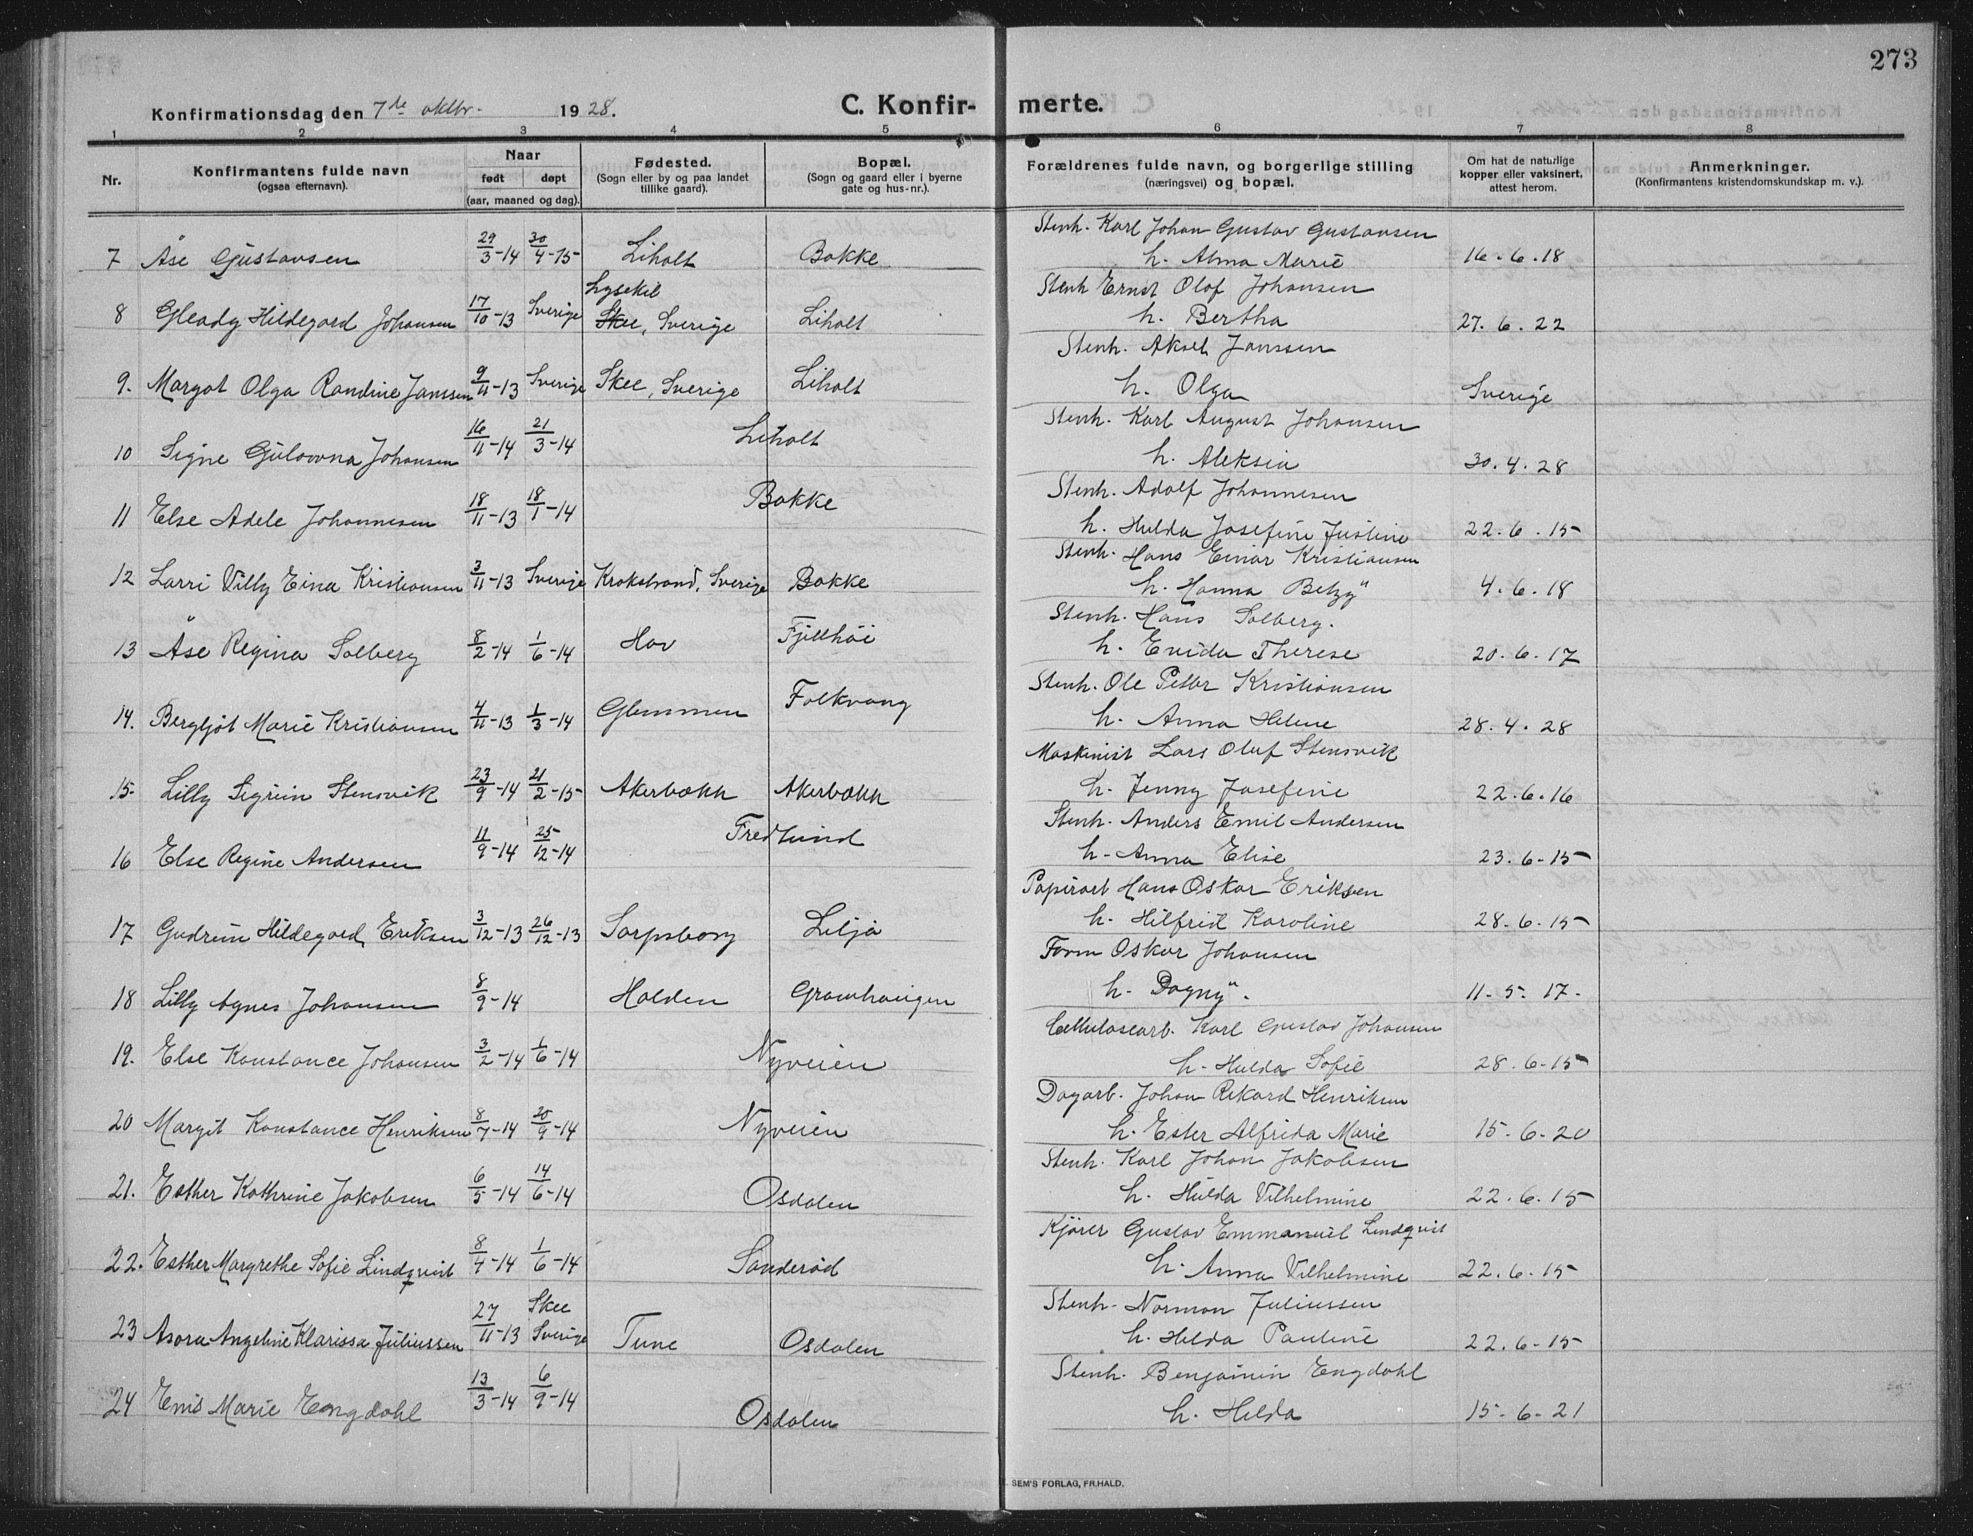 273
Konfirmationsdag den 7de oktbr. 1928. C. Konfirmerte.
1 2 3 4 5 6 7 8
Nr. Konfirmantens fulde navn (ogsaa efternavn). Naar født døpt (aar, maaned og dag). Fødested. (Sogn eller by og paa landet tillike gaard). Bopæl. (Sogn og gaard eller i byerne gate og hus-nr.). Forældrenes fulde navn, og borgerlige stilling (næringsvei) og bopæl. Om hat de naturlige kopper eller vaksinert, attest herom. Anmerkninger. (Konfirmantens kristendomskundskap m. v.).
Stenh. Karl Johan Gustav Gustavsen
7 Åse Gustavsen 29/3-14 30/4-15 Liholt Bakke h. Alma Marie 16-6-18
Lysekil Stenh Ernst Olof Johansen
8 Gleady Hildegard Johansen 17/10-13 Sverige Skee, Sverige Liholt h. Bertha 27.6.22
Stenh. Aksel Janssen
9. Margot Olga Randine Janssen 9/11-13 Sverige Skee, Sverige Liholt h. Olga Sverige
Stenh. Karl August Johansen
10 Signe Gulovna Johansen 16/11-14 21/3-14 Liholt h. Aleksia 30.4.28
Stenh. Adolf Johannesen
11 Else Adele Johannesen 18/11-13 18/1-14 Bakke h. Hulda Josefine Justine 22-6-15
Stenh. Hans Einar Kristiansen
12 Larri Villy Eina Kristiansen 3/11-13 Sverige Krokstrand, Sverige Bakke h. Hanna Betzy" 4-6-18
Stenh. Hans Solberg.
13 Åse Regina Solberg 8/2-14 1/6-14 Hov Fjellhöi h. Evida Therese 20.6.17
Stenh. Ole Petter Kristiansen
14. Bergljot Marie Kristiansen 4/11-13 1/3-14 Glemmen Folkvang h. Anna Helene 28.4.28
Maskinist Lars Oluf Stensvik
15- Lilly Sigrun Stensvik 23/9-14 21/2-15- Akerbækk Akerbækk h. Jenny Josefine 22.6.16
Stenh. Anders Emil Andersen
16 Else Regine Andersen 11/9-14 25/12-14 Fredlund h- Anna Elise 23.6-15
Papirarb Hans Oskar Eriksen
17 Gudrun Hildegard Eriksen 3/12-13 26/12-13 Sarpsborg Lilja h- Hilfrid Karoline 28.6-15
Form Oskar Johansen
18 Lilly Agnes Johansen 8/9-14 Halden Gramhaugen h- Dagny". 11-5-17-
Cellulosearb. Karl Gustav Johansen
19. Else Konstance Johansen 3/2-14 1/6-14 Nyveien h- Hulda Sofie 28.6-15
Dagarb. Johan Rikard Henriksen
20 Margit Konstance Henriksen 8/7-14 20/9-14 Nyveien h. Ester Alfrida Marie 15-6-20
Stenh. Karl Johan Jakobsen
21. Esther Kathrine Jakobsen 6/5-14 14/6-14 Osdalen h. Hulda Vilhelmine 22.6.15
Kjörer Gustav Emmanuel Lindqvist
22. Esther Margrethe Sofie Lindqvist 8/4-14 1/6-14 Sanderöd h. Anna Vilhelmine 22.6.15
Skee Stenh- Norman Juliussen
23 Asora Angeline Klarissa Juliussen 27/11-13 Sverige Tune Osdalen h. Hilda Pauline 22.6-15
Stenh. Benjamin Engdahl
24 Enis Marie Engdahl 13/3-14 6/9-14 Osdalen h. Hilda 15-6-21
SEM'S FORLAG, FR.HALD.